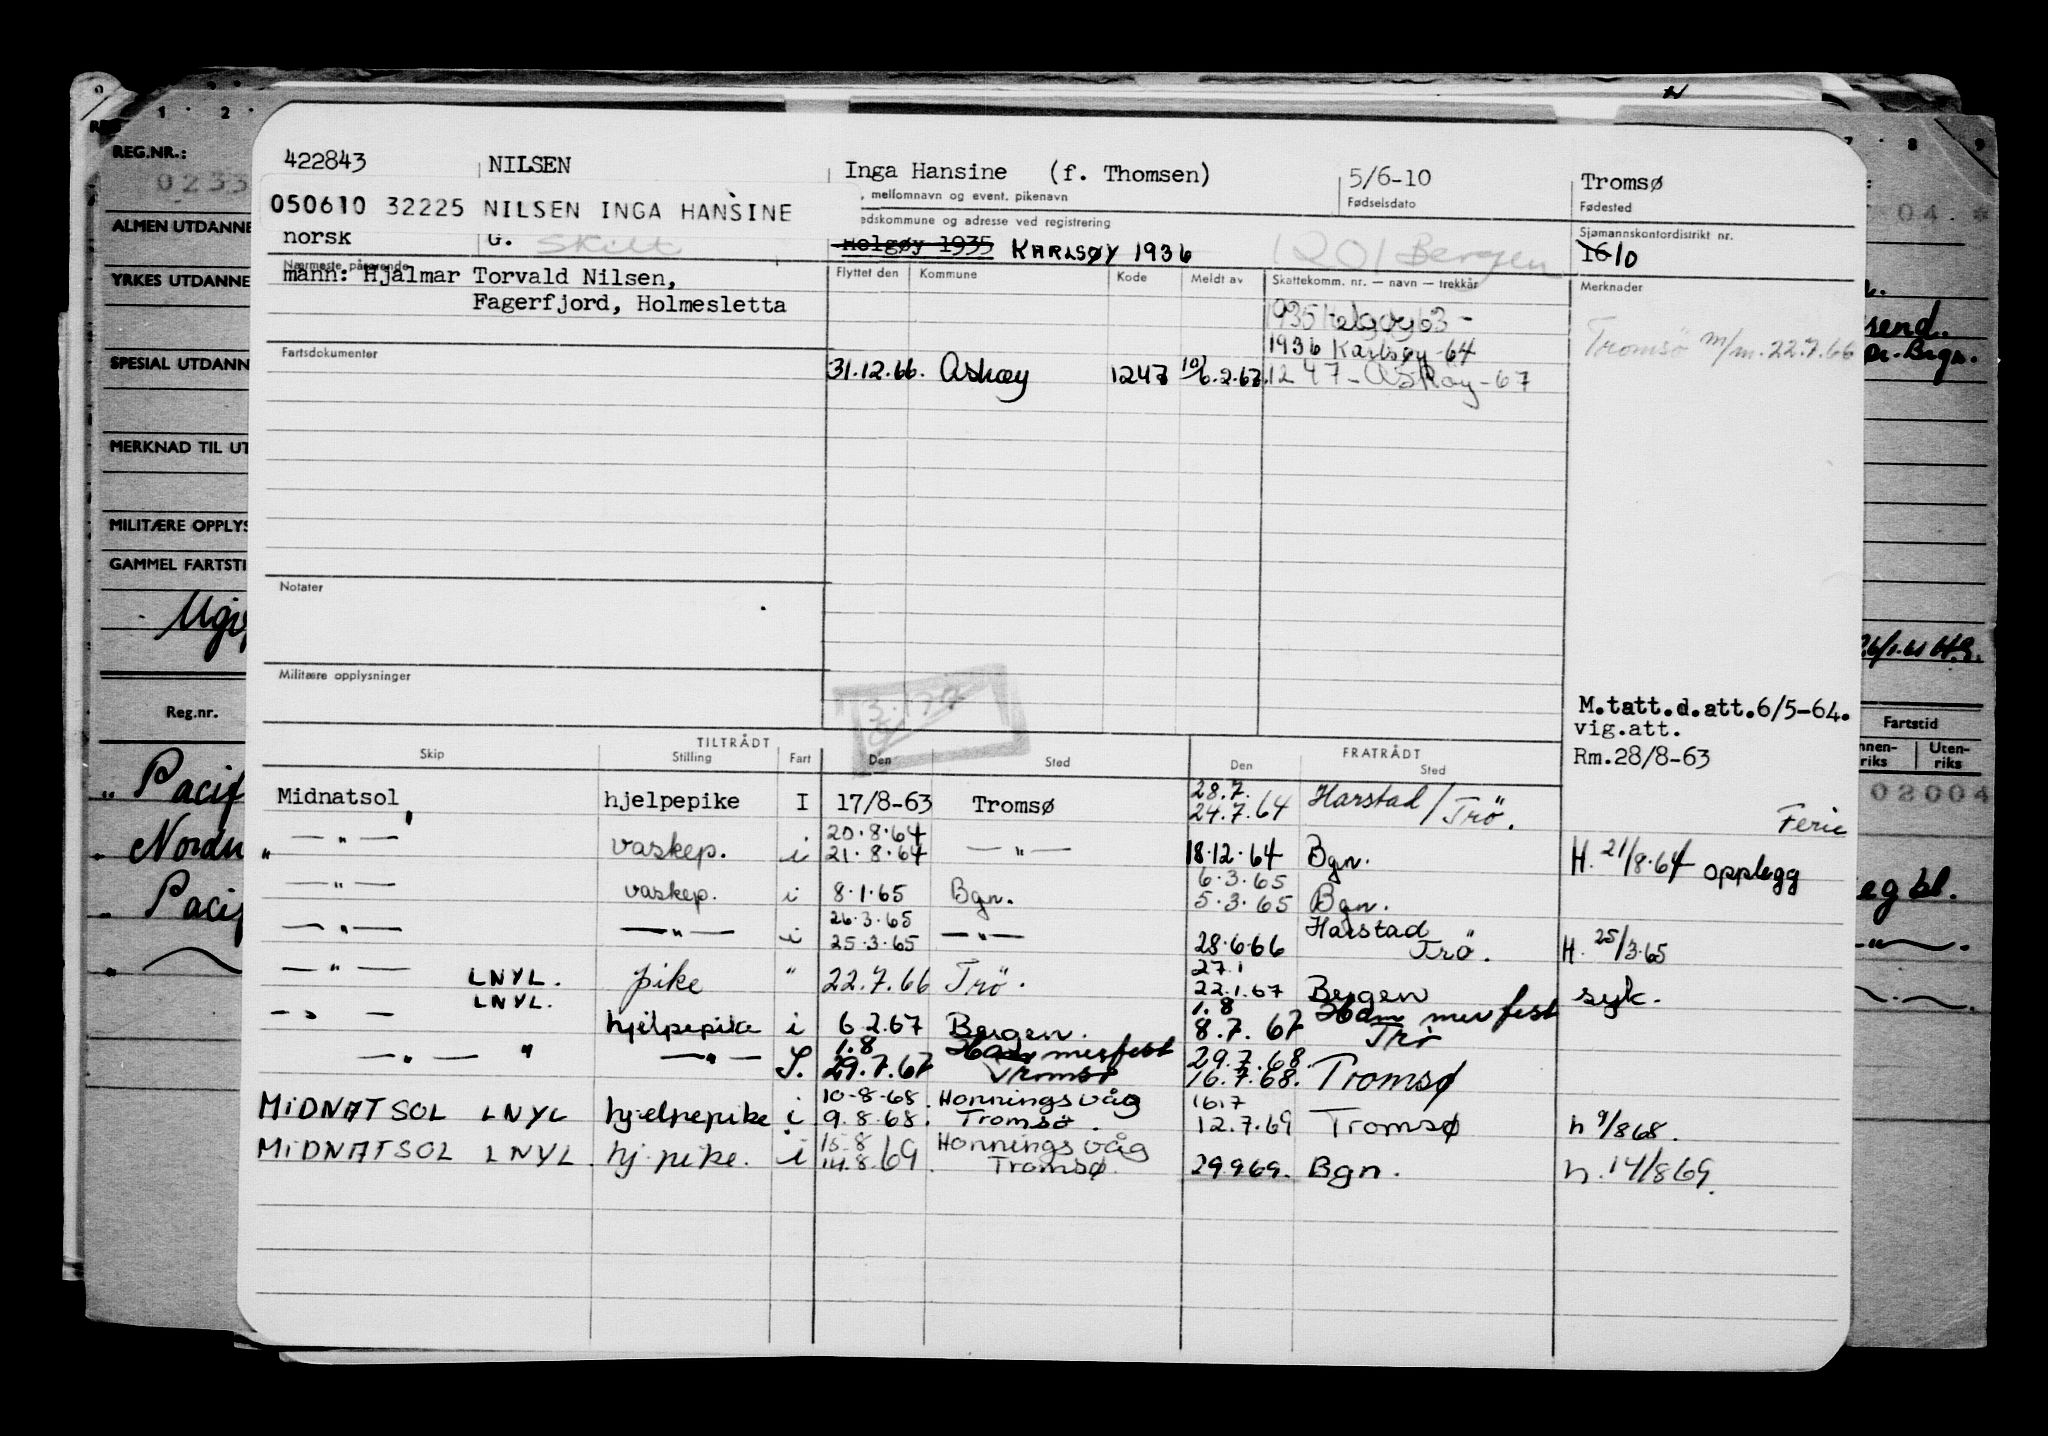 REG.NR.:
0233
ALMEN UTDANNE
YRKES UTDANNE
SPESIAL UTDANN
MERKNAD TIL UT
MILITÆRE OPPLYS
GAMMEL FARTSTI
Reg.nr.
Pacif
Nordn
Pacif
422843 NILSEN Inga Hansine (f. Thomsen) 5/6-10 Tromsø
, mellomnavn og event. pikenavn Fødselsdato Fødested
050610 32225 NILSEN INGA HANSINE
edskommune og adresse ved registrering Sjømannskontordistrikt nr.
norsk G. Skilt Helgøy 1935 KARLSØY 1936 1201 Bergen 16 10
Nærmeste pårørende Flyttet den Kommune Kode Meldt av Skattekomm. nr. — navn — trekkår Merknader
mann: Hjalmar Torvald Nilsen,
Fagerfjord, Holmesletta
1935 Helgøy 63 -
1936 Karlsøy-64 Tromsö m/m. 22.7.66
Fartsdokumenter
31.12.66. Askøy 1247 10/6.2.67. 1247-Askøy-67
Notater
Militære opplysninger
M.tatt.d.att.6/5-64.
vig.att.
Rm.28/8-63
TILTRÅDT FRATRÅDT
Skip Stilling Fart Den Sted Den Sted
28.7.
Midnatsol hjelpepike I 17/8-63 Tromsø 24.7.64 Harstad/Trö.
Ferie
20.8.64
— " — vaskep. i 21.8.64 — " — 18.12.64 Bgn. H. 21/8.64 opplegg
6.3.65
— " — vaskep. i 8.1.65 Bgn. 5.3.65 Bgn.
26.3.65 Harstad
— " — — " — i 25.3.65 — " — 28.6.66 Trö. H. 25/3.65
27.1
— " — LNYL. pike " 22.7.66 Trö. 22.1.67 Bergen syk.
1.8
— " — LNYL. hjelpepike i 6.2.67 Bergen. 8.7.67 Trö
1.8 29.7.68.
— " — " — " — S. 29.7.67 Tromsø 16.7.68. Tromsø
10-8-68. Honningsvåg 16.7
MIDNATSOL LNYL hjelpepike i 9.8.68. Tromsö. 12.7.69 Tromsø h 9/868.
15.8 Honningsvåg
MIDNATSOL LNYL. hj.pike. i 14.8.69. Tromsø. 29.969. Bgn. h.14/869.
04.
send.
Brgn.
Fartstid
nnen-
riks
Uten-
riks
02004
eg bl.